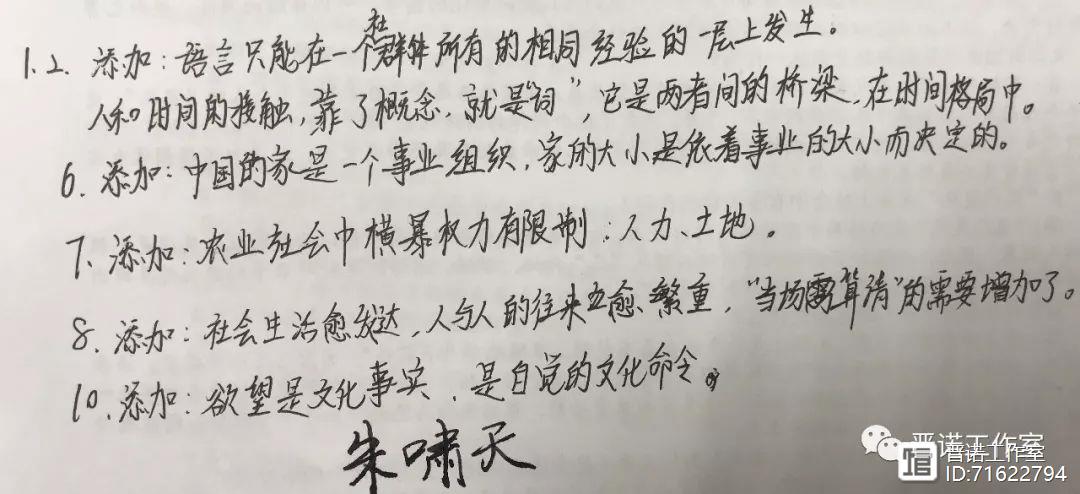 1.2. 添加：语言只能在一个社群所有的相同经验的一层上发生。
人和时间的接触，靠了概念，就是“词”，它是两者间的桥梁，在时间格局中。
6. 添加：中国的家是一个事业组织，家的大小是依着事业的大小而决定的。
7. 添加：农业社会中横暴权力有限制：人力、土地。
8. 添加：社会生活愈发达，人与人的往来也愈繁重，“当场算清”的需要增加了。
10. 添加：欲望是文化事实，是自觉的文化命令。
朱啸天
晋诺工作室
馆 晋诺工作室
ID:71622794